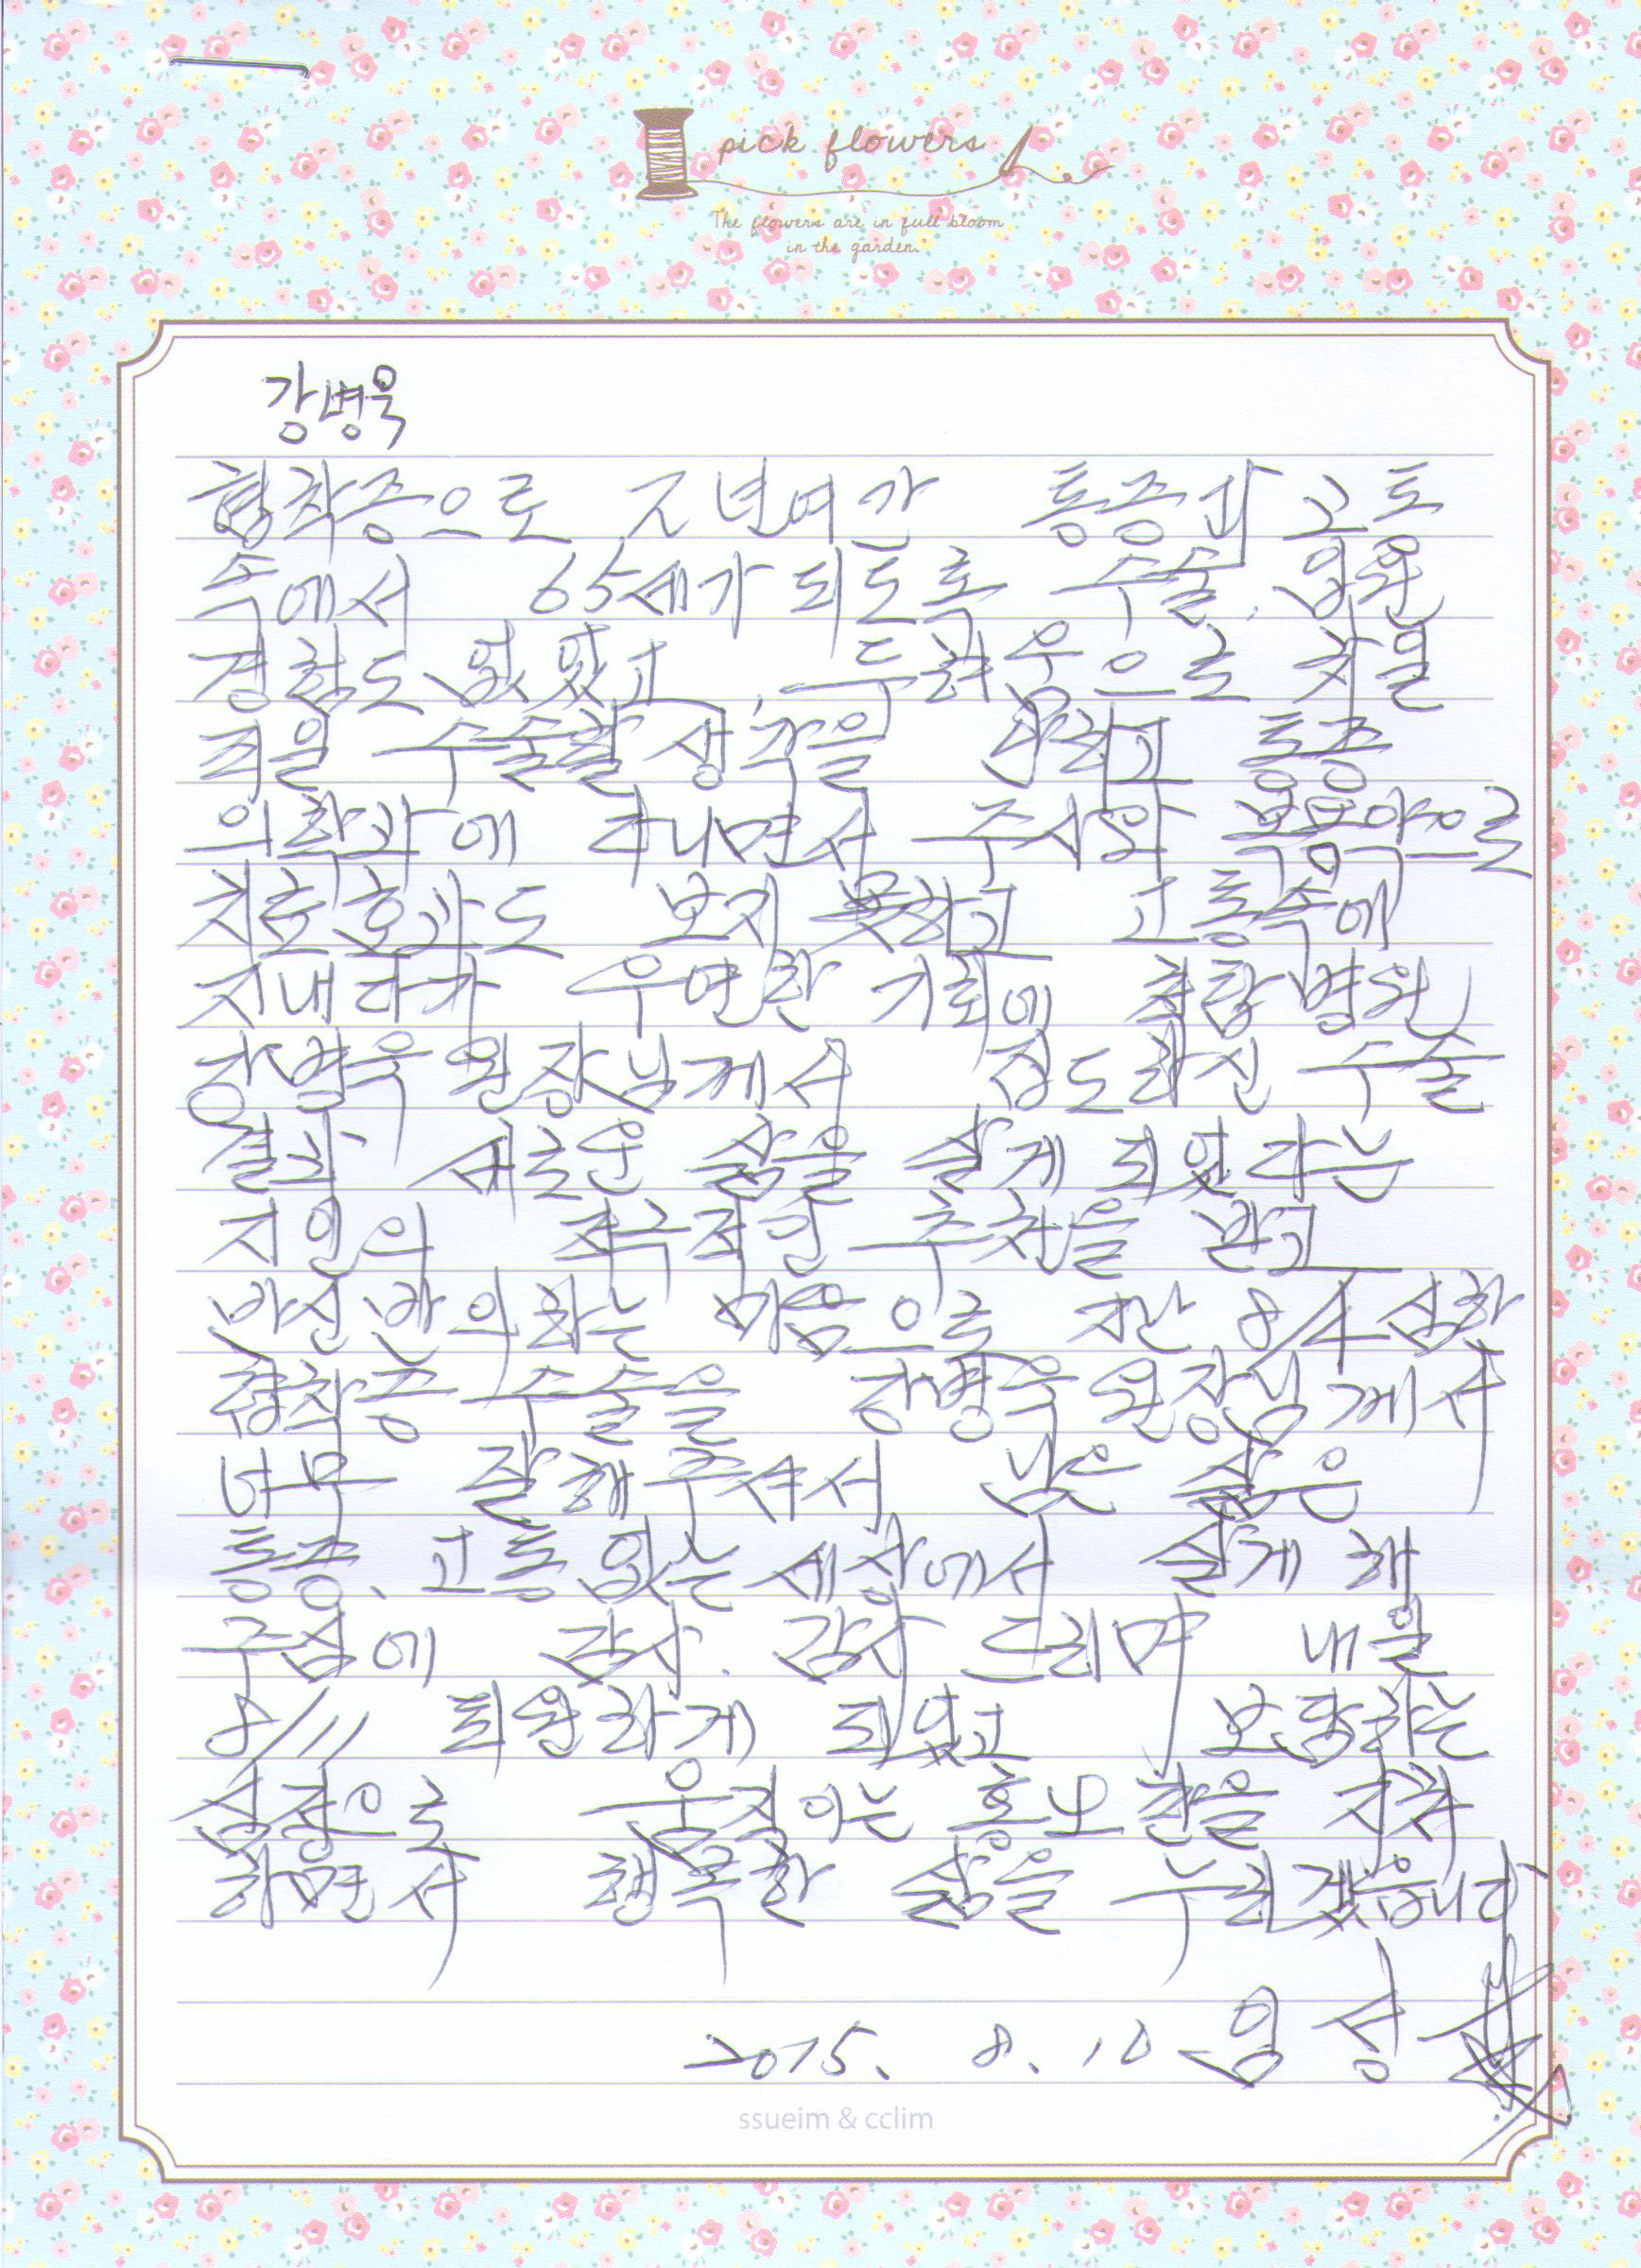 pick flowers
The flowers are in full bloom
in the garden.
강병욱
협착증으로 7년여간 통증과 고통
속에서 65세가 되도록 수술, 입원
경험도 없었고, 두려움으로 차일
피일 수술할 생각을 못하고 통증
의학과에 다니면서 주사와 복용약으로
치료효과도 보지 못하고 고통속에
지내다가 우연한 기회에 척탑병원
강병욱 원장님께서 집도하신 수술
결과 새로운 삶을 살게 되었다는
지인의 적극적인 추천을 받고
반신반의하는 마음으로 지난 8/4 심한
협착증 수술을 강병욱 원장님께서
너무 잘해주셔서 남은 삶은
통증, 고통 없는 세상에서 살게 해
주심에 감사. 감사 드리며 내일
8/11 퇴원하게 되었고 보답하는
심정으로 움직이는 홍보맨을 자처
하면서 행복한 삶을 누리겠습니다
2015. 8. 10 임성
ssueim & cclim